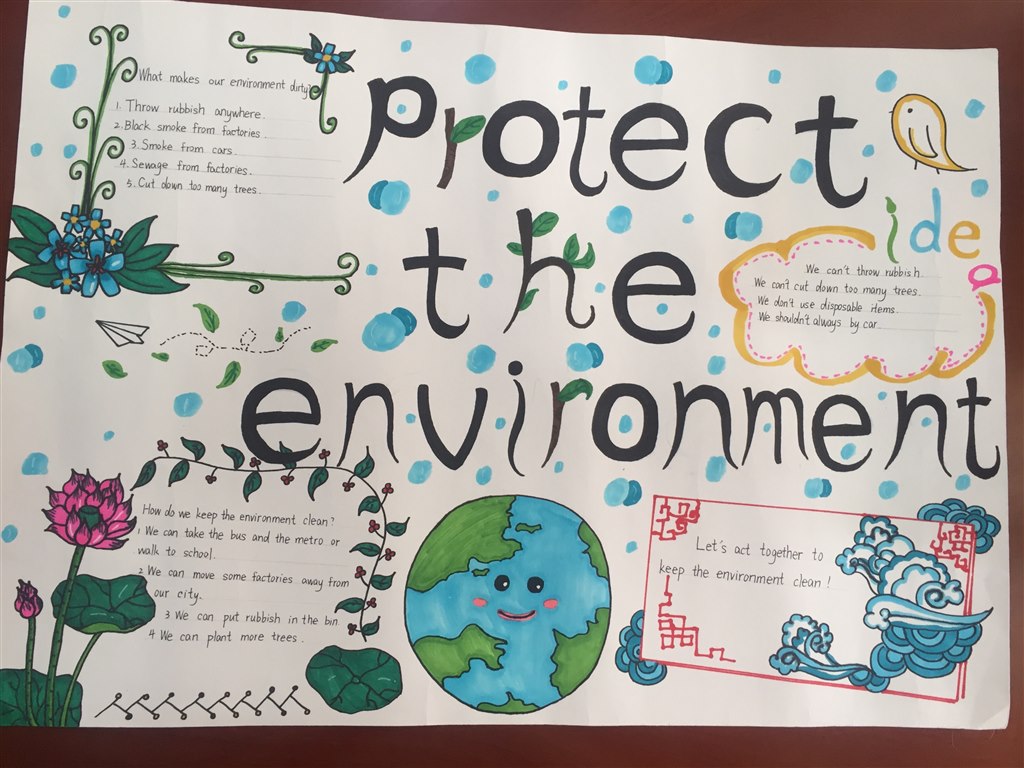 What makes our environment dirty?
1. Throw rubbish anywhere.
2. Black smoke from factories.
3. Smoke from cars.
4. Sewage from factories.
5. Cut down too many trees.
protect
the
environment
idea
We can't throw rubbish.
We can't cut down too many trees.
We don't use disposable items.
We shouldn't always by car.
How do we keep the environment clean?
1 We can take the bus and the metro or
walk to school.
2 We can move some factories away from
our city.
3 We can put rubbish in the bin.
4 We can plant more trees.
Let's act together to
keep the environment clean!